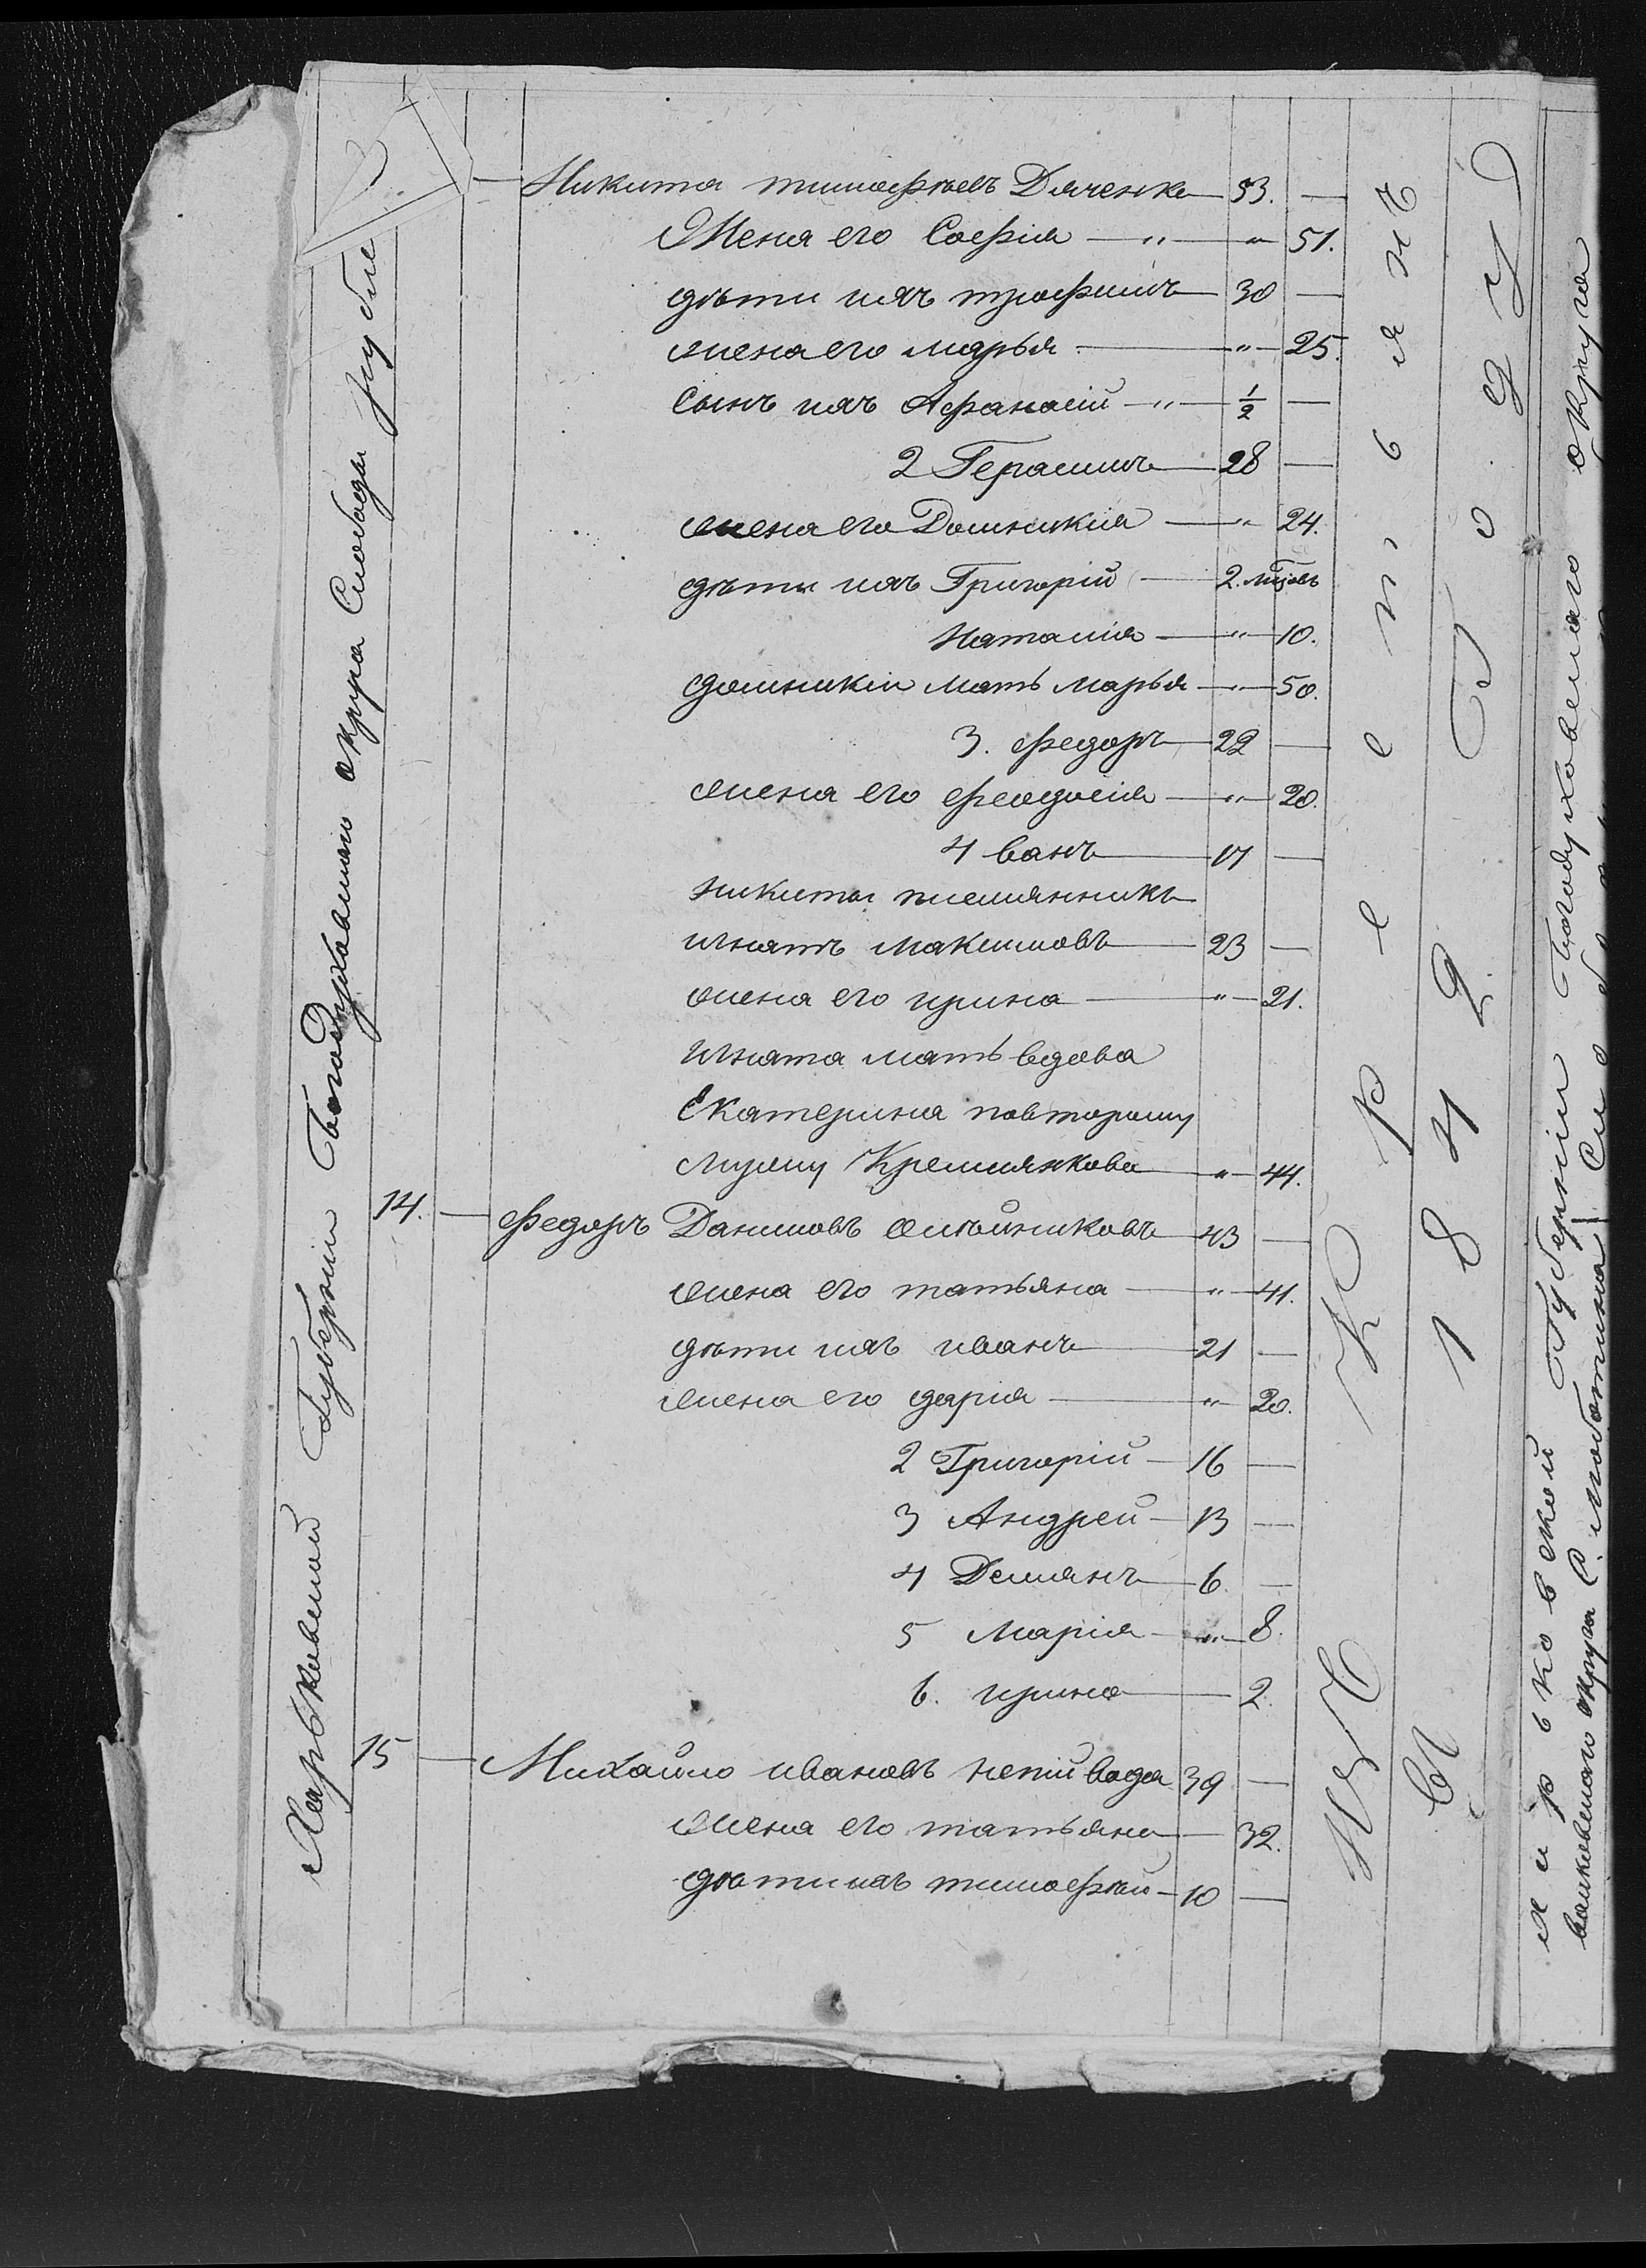 Харьковской Губерніи Богодуховскаго округа Слободы
Никита тимофѣевъ Дяченко 53. —
Жена его Софія — " — " 51.
дѣти ихъ трофимъ 30 —
жена его марья — " 25.
Сынъ ихъ Афанасій — " — 1/2 —
2 Герасимъ 28 —
жена его Домникія — " 24.
дѣти ихъ Григорій — 2. мѣсявъ
Наталия — " 10.
домникіи мать марья — " 50.
3. федоръ 22 —
жена его феодосія — " 20.
4 ванъ 17 —
никиты племянникъ
игнатъ максимовъ 23 —
жена его ирина — " 21.
игната мать вдова
Екатерина повторому
мужу Кремлянкова " 44.
14. — федоръ Даниловъ Олѣйниковъ 43 —
жена его татьяна — " 41.
дѣти ихъ иванъ 21 —
жена его дарія — " 20.
2 Григорій — 16 —
3 Андрей — 13 —
4 Демянъ 6. —
5 Марія — " 8.
6. ирина — 2.
15 — Михайло ивановъ непійвода 39 —
жена его татьяна — 32.
дѣти ихъ тимофѣй — 10 —
Изъ Крестьянъ
Въ 1842. Году
Харьковской Губерніи Богодуховскаго округа
валковскаго округа С. люботина